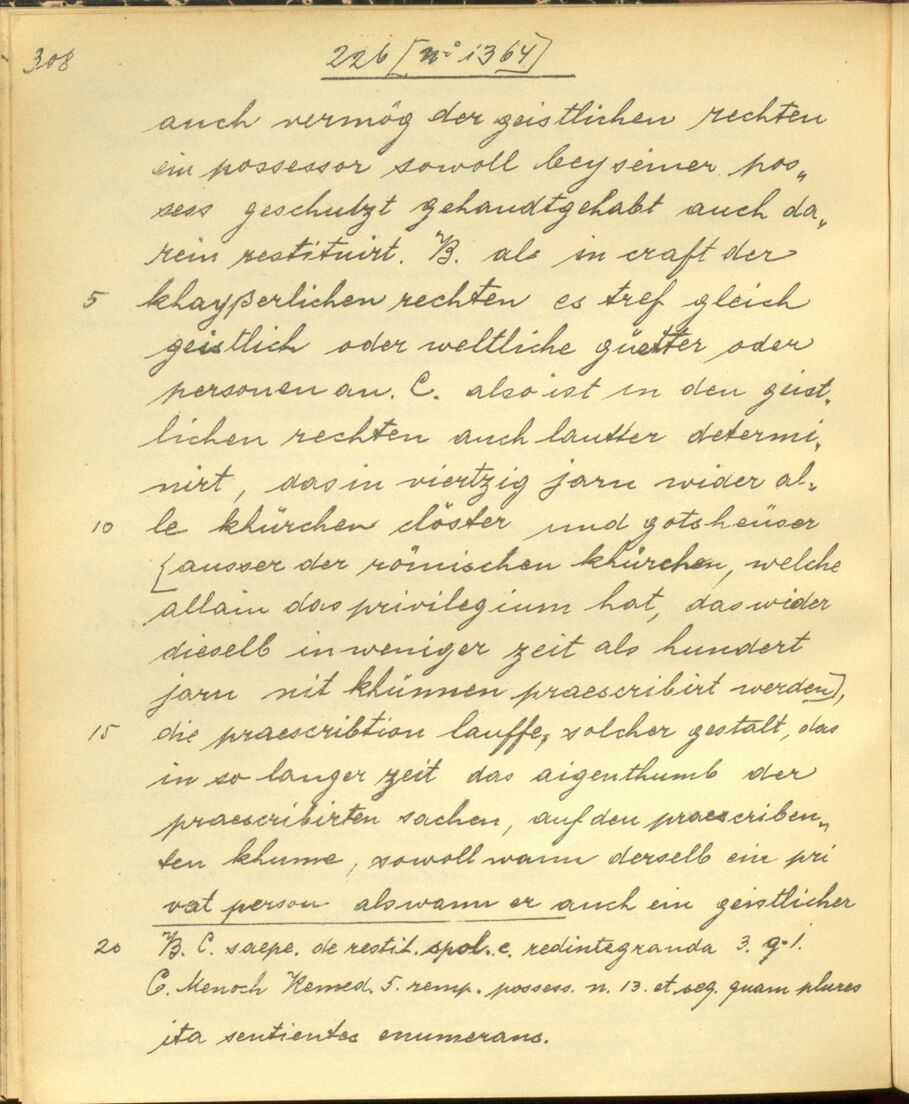 308
226 [nº 1364]
auch vermög der geistlichen rechten
ein possessor sowoll bey seiner pos„
sess geschutzt gehandtgehabt auch da„
rein restituirt. B. als in craft der
5 khayßerlichen rechten es tref gleich
geistlich oder weltliche güetter oder
personen an. C. also ist in den geist„
lichen rechten auch lautter determi„
nirt, das in viertzig jarn wider al„
10 le khürchen clöster und gotsheüser
[ausser der römischen khürchen, welche
allain das privilegium hat, das wider
dieselb in weniger zeit als hundert
jarn nit khünnen praescribirt werden],
15 die praescribtion lauffe, solcher gestalt, das
in so langer zeit das aigenthumb der
praescribirten sachen, auf den praescriben„
ten khume, sowoll wann derselb ein pri
vat person als wann er auch ein geistlicher
20 B. C. saepe. de restit. spol. c. redintegranda 3. q. 1.
C. Menoch Remed. 5. remp. possess. n. 13. et seq. quam plures
ita sentientes enumerans.